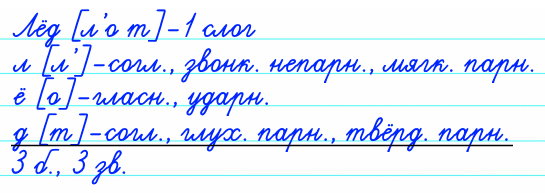 Лёд [л'о т]-1 слог
л [л']-согл., звонк. непарн., мягк. парн.
ё [о]-гласн., ударн.
д [т]-согл., глух. парн., твёрд. парн.
3 б., 3 зв.